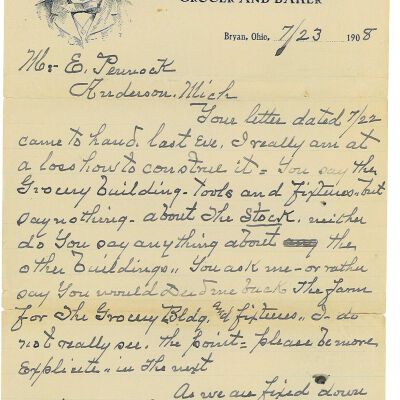 GROCER AND BAKER
Bryan, Ohio, 7/23 1908
Mr E. Pennock
Anderson. Mich
Your letter dated 7/22
came to hand. last Eve. I really am at
a loss how to construe it = You say the
Grocery building - tools and fixtures - but
say nothing - about The Stock. neither
do You say anything about the
other buildings,, You ask me - or rather
say You would Deed me back The Farm
for The Grocery Bldg. and fixtures,, I do
not really see. The point = please be more
Explicite,, in The next
As we are fixed down